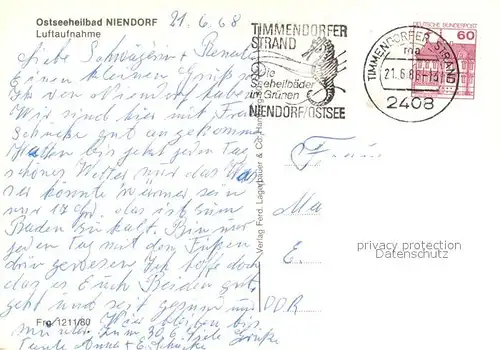 Ostseeheilbad NIENDORF
Luftaufnahme
21.6.68
Liebe Schwägerin + Renate
Einen kleinen Gruß
von Niendorf
Wir sind hier mit
Schucke gut an gekommen
Hatten bis jetzt jeden Tag
schönes Wetter nur das Was
ser könnte wärmer sein
nur 17 das ist zum
Baden zu kalt. Bin nur
jeden Tag mit den Füßen
drin gewesen Ich hoffe doch
das es Euch Beiden gut
geht und seit gesund
Wir bleiben bis
zum 30.6. Viele Grüße
Tante Anna + E. Schucke
Frg. 1211/80
Verlag Ferd. Lagerbauer & Co, Hamburg
TIMMENDORFER
STRAND
Die
Seeheilbäder
im Grünen
NIENDORF/OSTSEE
TIMMENDORFER STRAND
ma
21.6.86-13
2408
DEUTSCHE BUNDESPOST
60
Frau
Ma
E
DDR
privacy protection
Datenschutz